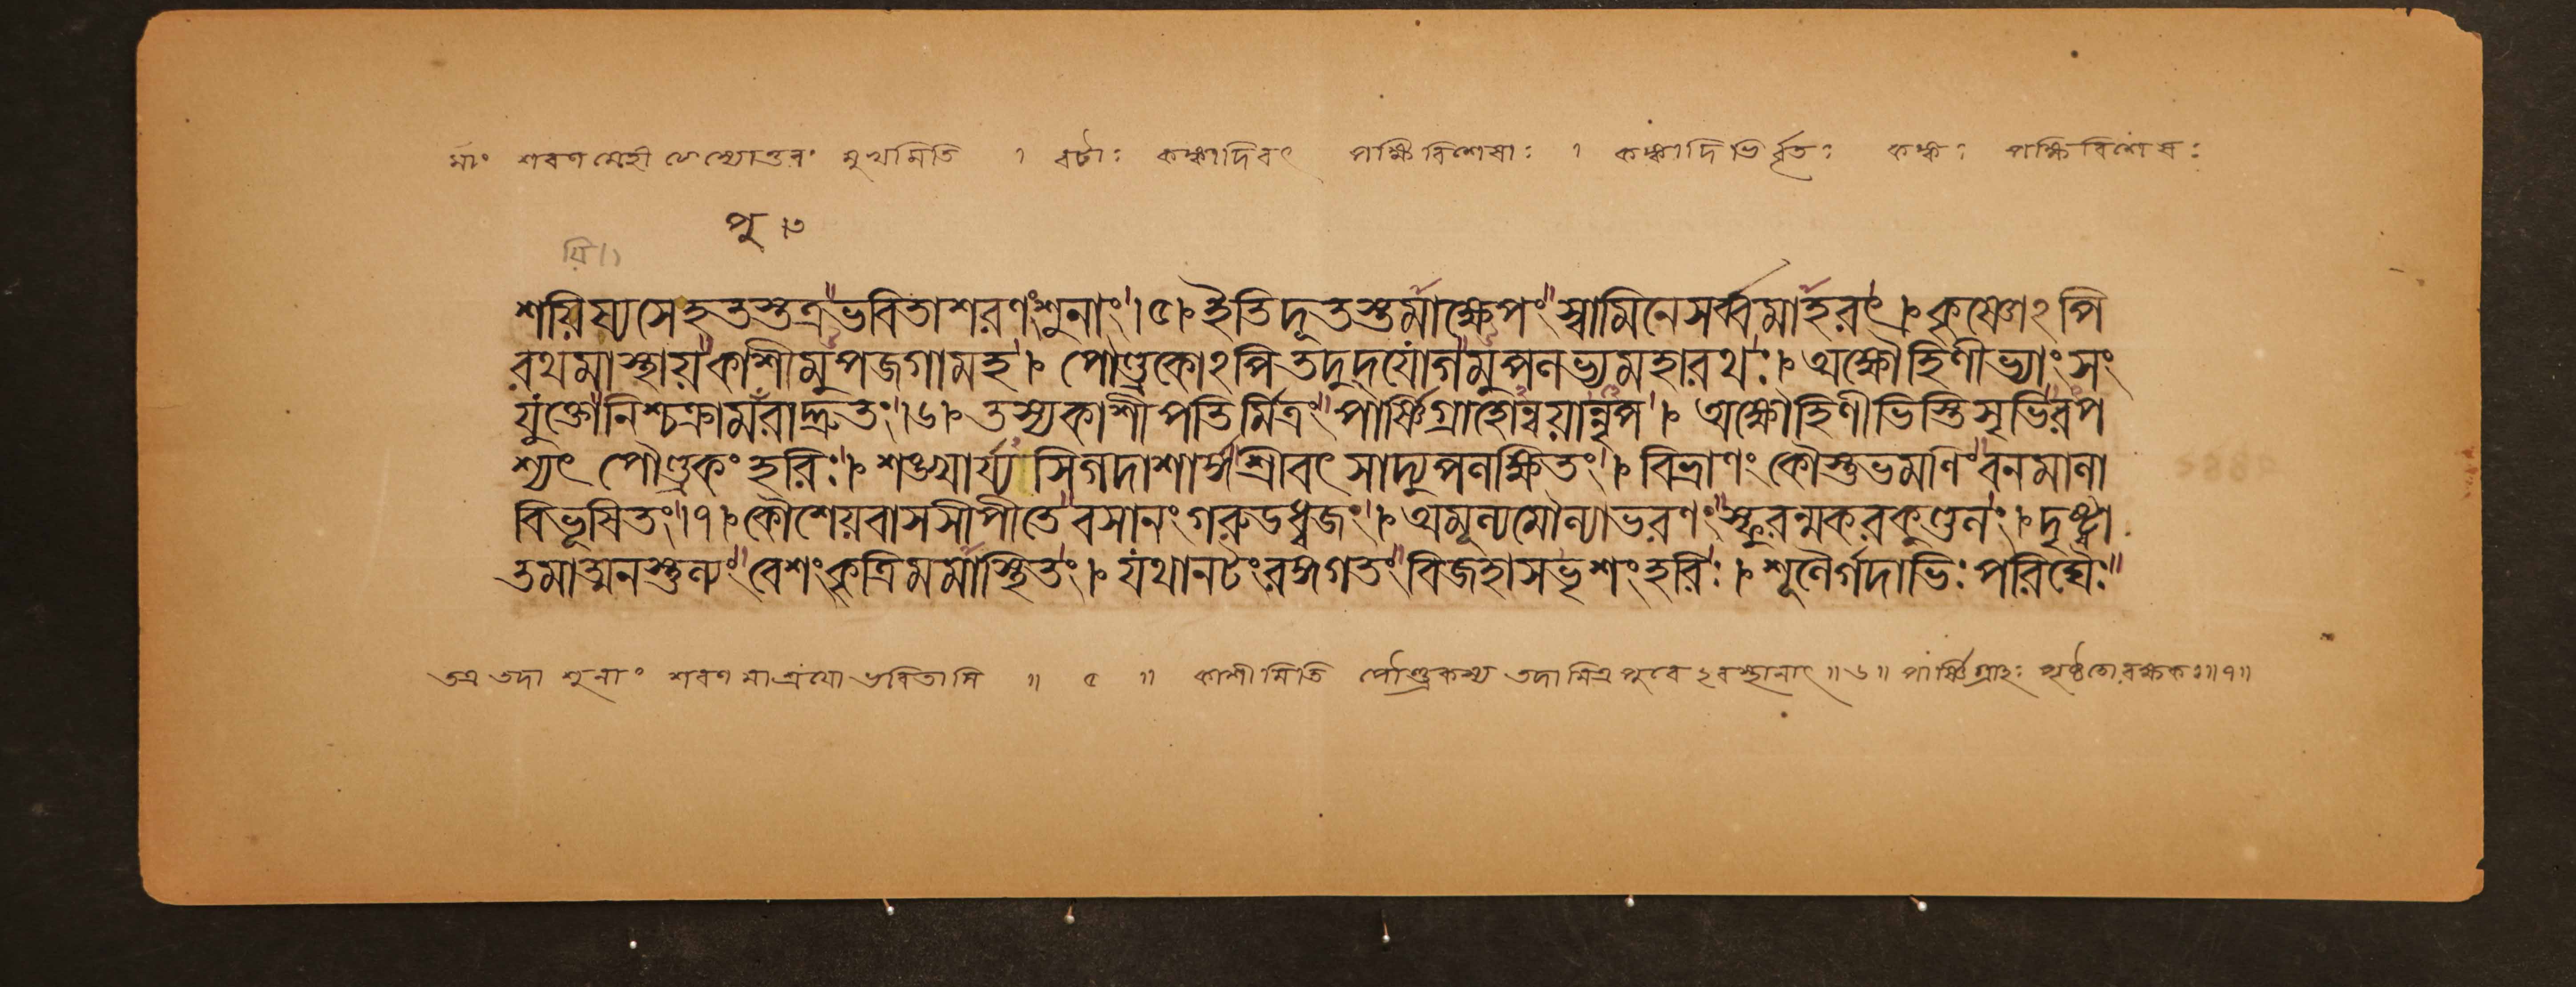 মাং শরণমেহীত্যেস্যোত্তরং মুখমিতি । বটাঃ কঙ্কাদিবৎ পক্ষিবিশেষাঃ । কঙ্কাদিভির্বৃতঃ কঙ্কঃ পক্ষিবিশেষঃ
পু ৩
য়ি
শয়িষ্যসেহতস্তত্রভবিতাশরণংশুনাং।৫। ইতিদূতস্তমাক্ষেপংস্বামিনেসর্ব্বমাহরৎ । কৃষ্ণোঽপি
রথমাস্থায়কাশীমুপজগামহ। পৌণ্ড্রকোঽপিতদুদ্যোগমুপলভ্যমহারথঃ। অক্ষৌহিণীভ্যাংসং
যুক্তোনিশ্চক্রামপুরাদ্দ্রুতং।৬। তস্যকাশীপতির্মিত্রংপার্ষ্ণিগ্রাহোন্বয়ান্নৃপ। অক্ষৌহিণীভিস্তিসৃভিরপ
শ্যৎ পৌণ্ড্রকং হরিঃ। শঙ্খার্য্যসিগদাশার্ঙ্গশ্রীবৎসাদ্যুপলক্ষিতং। বিভ্রাণং কৌস্তুভমণিংবনমালা
বিভূষিতং।৭।কৌশেয়বাসসীপীতেবসানংগরুডধ্বজং। অমূল্যমৌল্যাভরণংস্ফুরন্মকরকুণ্ডলং। দৃষ্ট্বা
তমাত্মনস্তুল্যংবেশংকৃত্রিমমাস্থিতং। যথানটংরঙ্গগতংবিজহাসভৃশংহরিঃ। শূলৈর্গদাভিঃপরিঘৈঃ
তত্র তদা শুনাং শরণমাশ্রয়ো ভবিতাসি ॥ ৫ ॥ কাশীমিতি পৌণ্ড্রকস্য তদামিত্রপুরেঽবস্থানাৎ॥৬॥ পার্ষ্ণিগ্রাহঃ পৃষ্ঠতোরক্ষকঃ॥৭॥